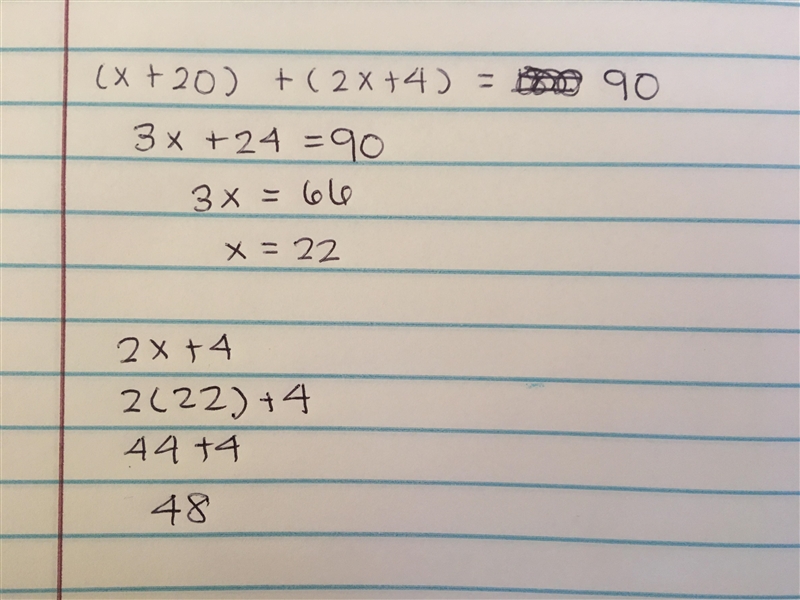 (x + 20) + (2x+4) = 90
3x + 24 = 90
3x = 66
x = 22
2x + 4
2(22) + 4
44 + 4
48